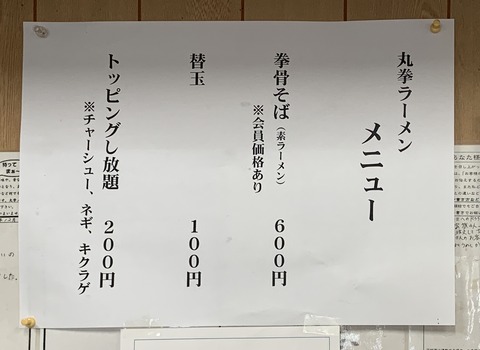 丸拳ラーメン
メニュー
拳骨そば（素ラーメン） 600円
※会員価格あり
替玉 100円
トッピングし放題 200円
※チャーシュー、ネギ、キクラゲ